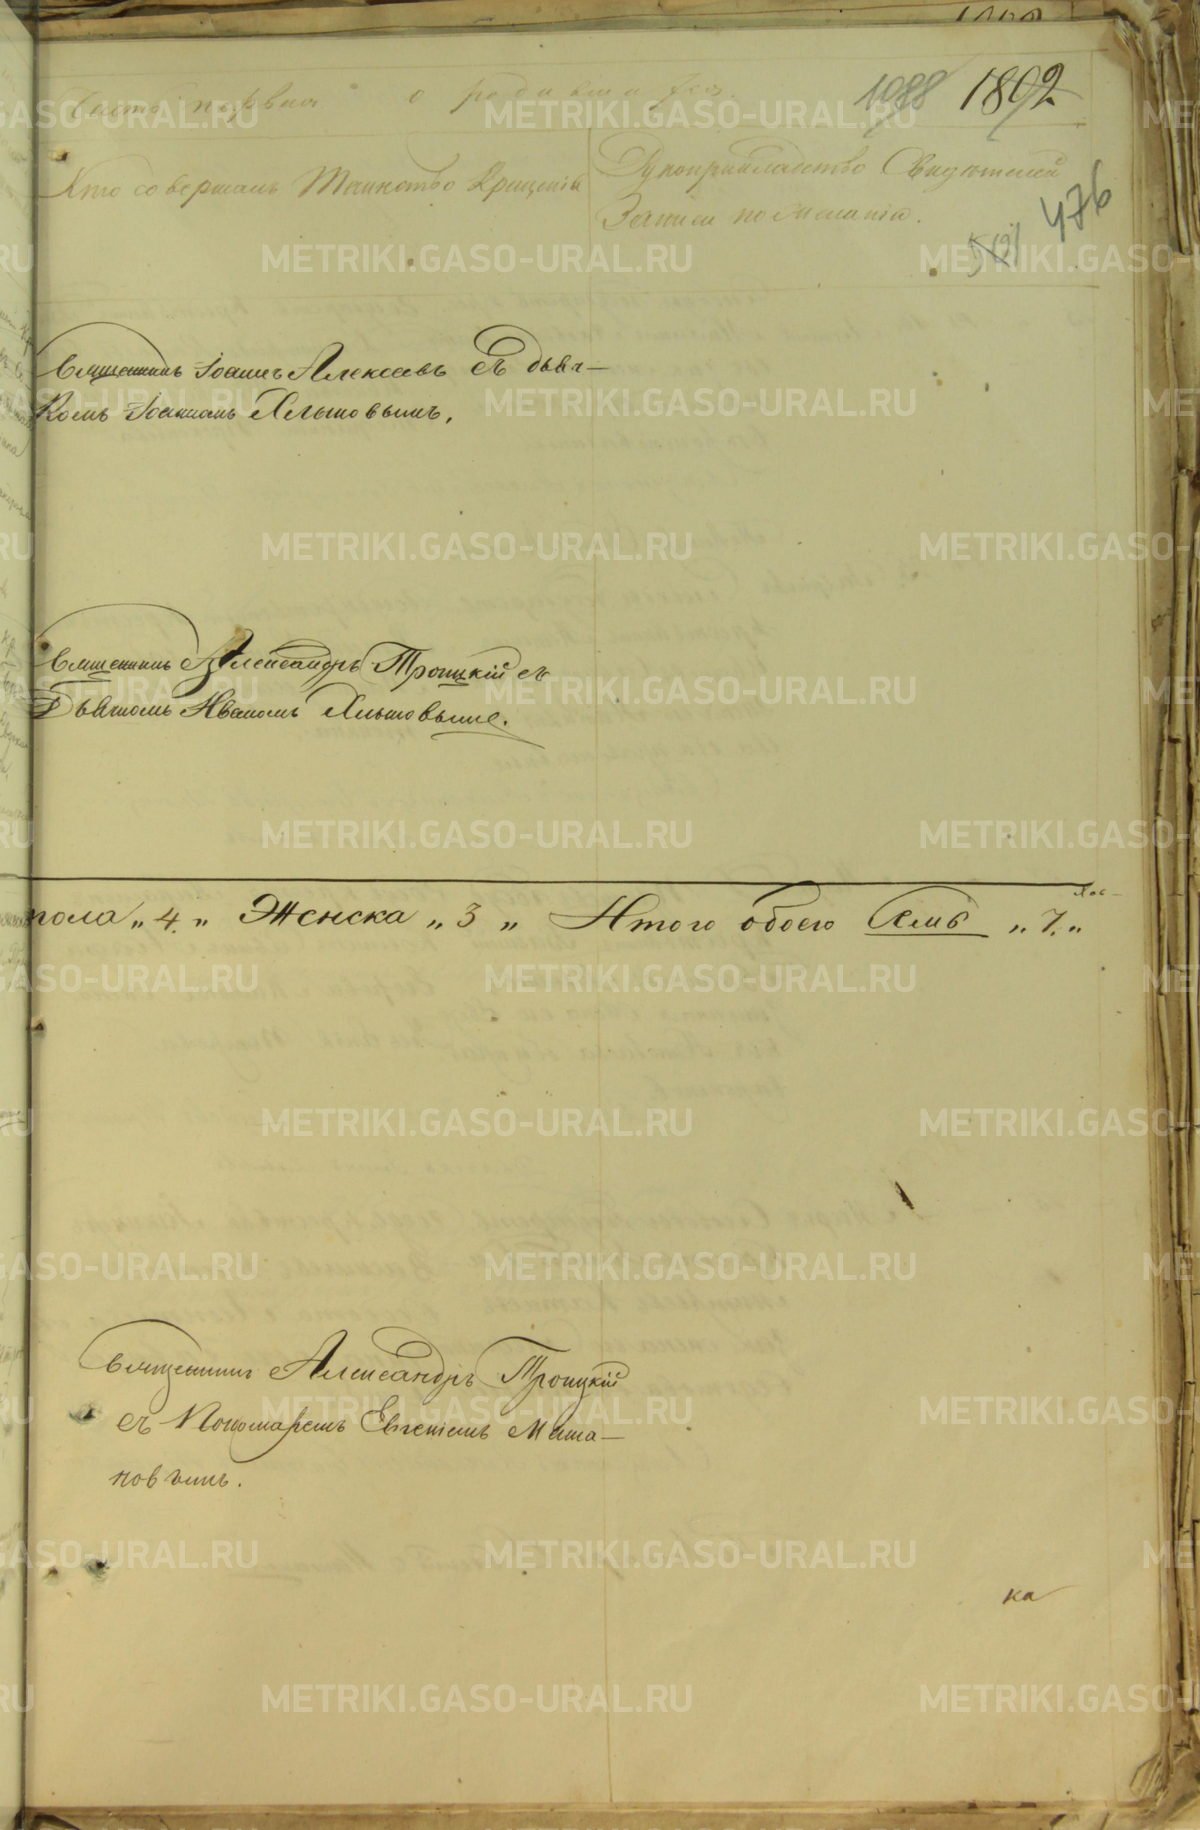 Часть первая о родившихся. 1088 1892
Кто совершалъ Таинство Крещенія
Рукоприкладство Свидетелей
Записи по желанію.
476
Священникъ Іоаннъ Алексѣевъ съ дьяч-
комъ Іоанномъ Хлыновымъ.
Священникъ Александръ Троицкій съ
Дьячкомъ Иваномъ Хлыновымъ.
пола „4„ Женска „3„ Итого обоего Семь „7.„
Священникъ Александръ Троицкій
съ Пономаремъ Евгеніемъ Мама-
новымъ.
ка
METRIKI.GASO-URAL.RU